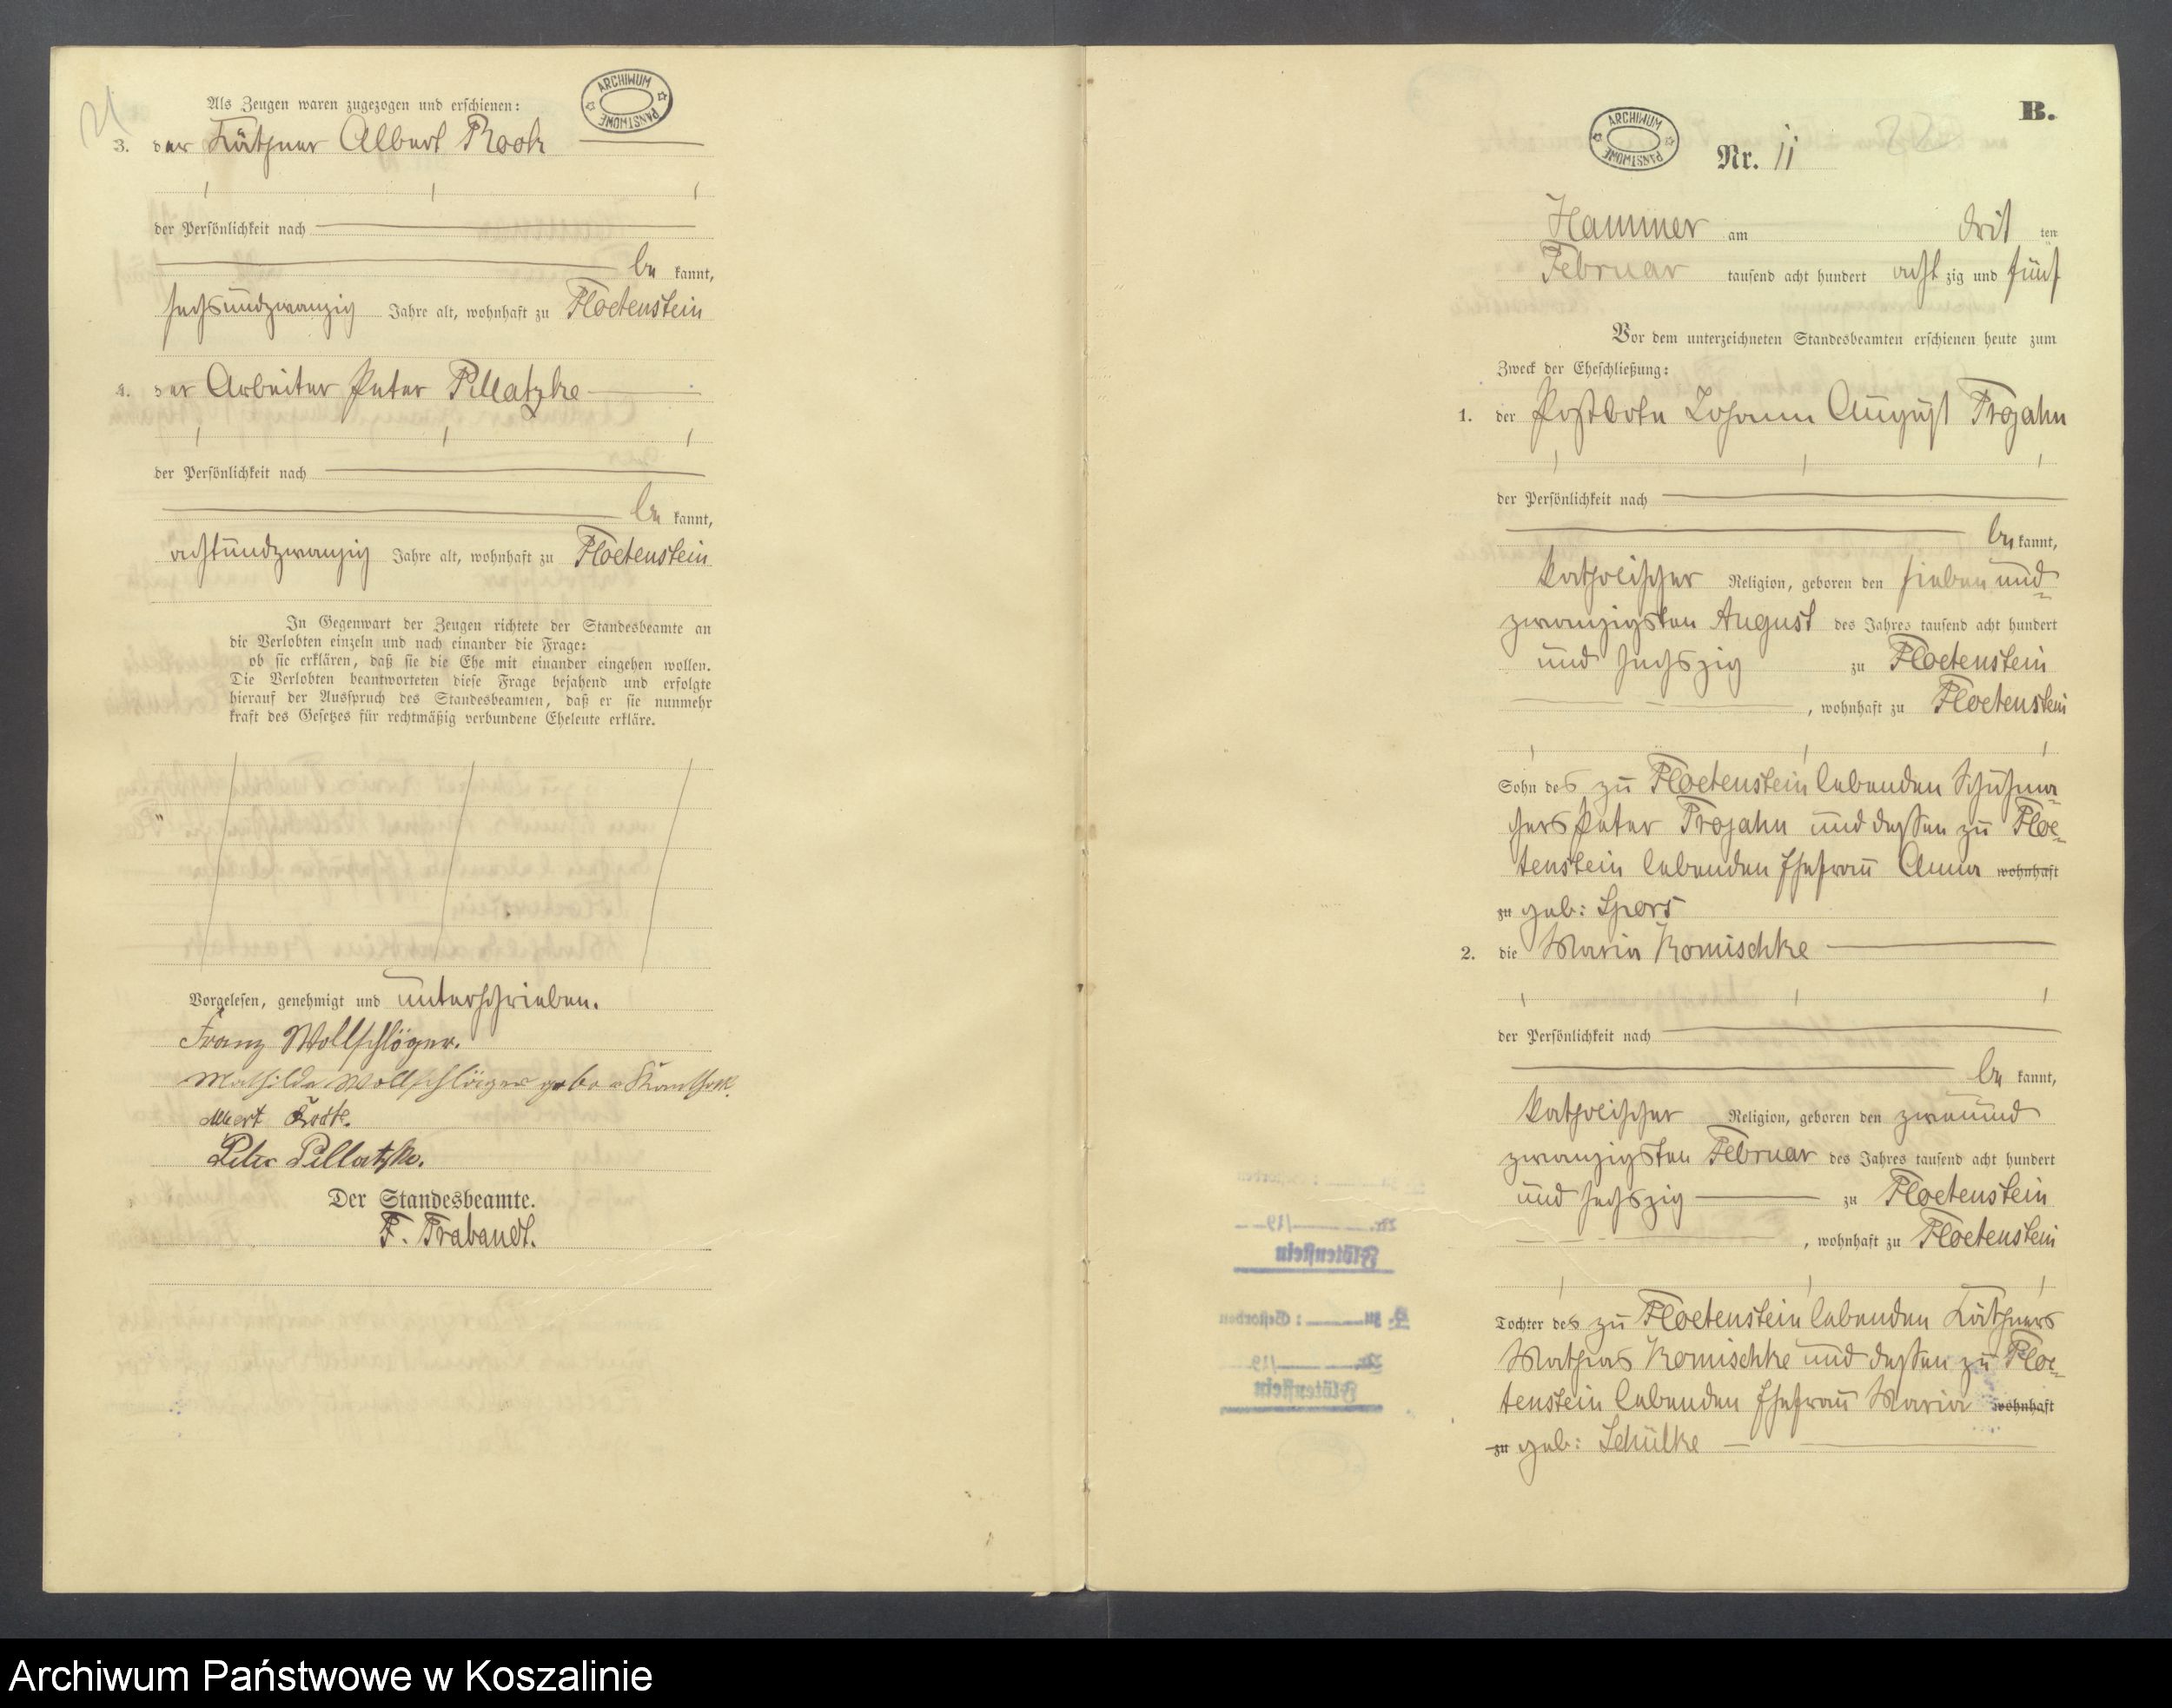 21
Als Zeugen waren zugezogen und erschienen:
ARCHIWUM PAŃSTWOWE
3. der Käthner Albert Rook
der Persönlichkeit nach
be kannt,
sechsundzwanzig Jahre alt, wohnhaft zu Floetenstein
4. der Arbeiter Peter Pillatzke
der Persönlichkeit nach
be kannt,
achtundzwanzig Jahre alt, wohnhaft zu Floetenstein
In Gegenwart der Zeugen richtete der Standesbeamte an
die Verlobten einzeln und nach einander die Frage:
ob sie erklären, daß sie die Ehe mit einander eingehen wollen.
Die Verlobten beantworteten diese Frage bejahend und erfolgte
hierauf der Ausspruch des Standesbeamten, daß er sie nunmehr
kraft des Gesetzes für rechtmäßig verbundene Eheleute erkläre.
Vorgelesen, genehmigt und unterschrieben.
Franz Wollschläger.
Mathilde Wollschläger
Albert
Peter Pillatzke.
Der Standesbeamte.
F. Trabandt.
B.
ARCHIWUM PAŃSTWOWE
Nr. 11
Hammer am drit ten
Februar tausend acht hundert acht zig und fünf
Vor dem unterzeichneten Standesbeamten erschienen heute zum
Zweck der Eheschließung:
1. der Postbote Johann August Trojahn
der Persönlichkeit nach
be kannt,
katholischer Religion, geboren den sieben und
zwanzigsten August des Jahres tausend acht hundert
und sechszig zu Floetenstein
, wohnhaft zu Floetenstein
Sohn des zu Floetenstein lebenden Schuhma-
chers Peter Trojahn und dessen zu Floe-
tenstein lebenden Ehefrau Anna wohnhaft
zu geb: Spors
2. die Maria Komischke
der Persönlichkeit nach
be kannt,
katholischer Religion, geboren den zweiund
zwanzigsten Februar des Jahres tausend acht hundert
und sechszig zu Floetenstein
, wohnhaft zu Floetenstein
Tochter des zu Floetenstein lebenden Käthners
Mathias Komischke und dessen zu Floe-
tenstein lebenden Ehefrau Maria wohnhaft
zu geb: Schülke
Archiwum Państwowe w Koszalinie